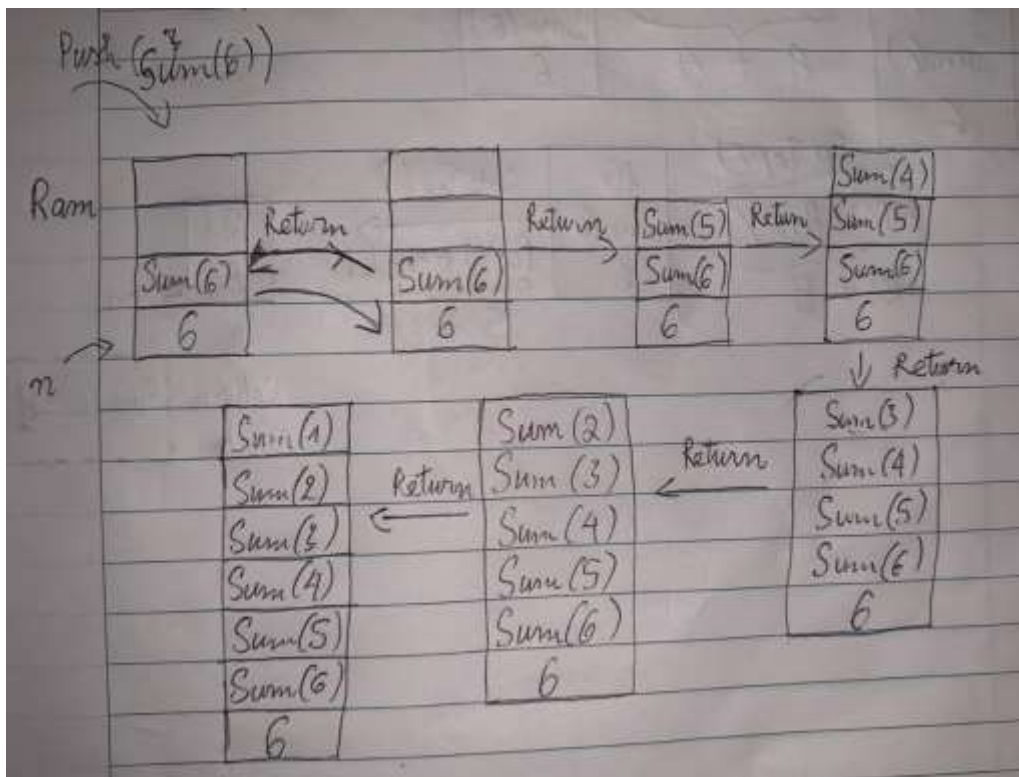 Push (Sum(6))
Ram
Sum(6)
6
Return
Sum(6)
6
Return
Sum(5)
Sum(6)
6
Return
Sum(4)
Sum(5)
Sum(6)
6
n
Return
Sum(3)
Sum(4)
Sum(5)
Sum(6)
6
Return
Sum (2)
Sum (3)
Sum (4)
Sum (5)
Sum(6)
6
Return
Sum(1)
Sum(2)
Sum(3)
Sum(4)
Sum(5)
Sum(6)
6